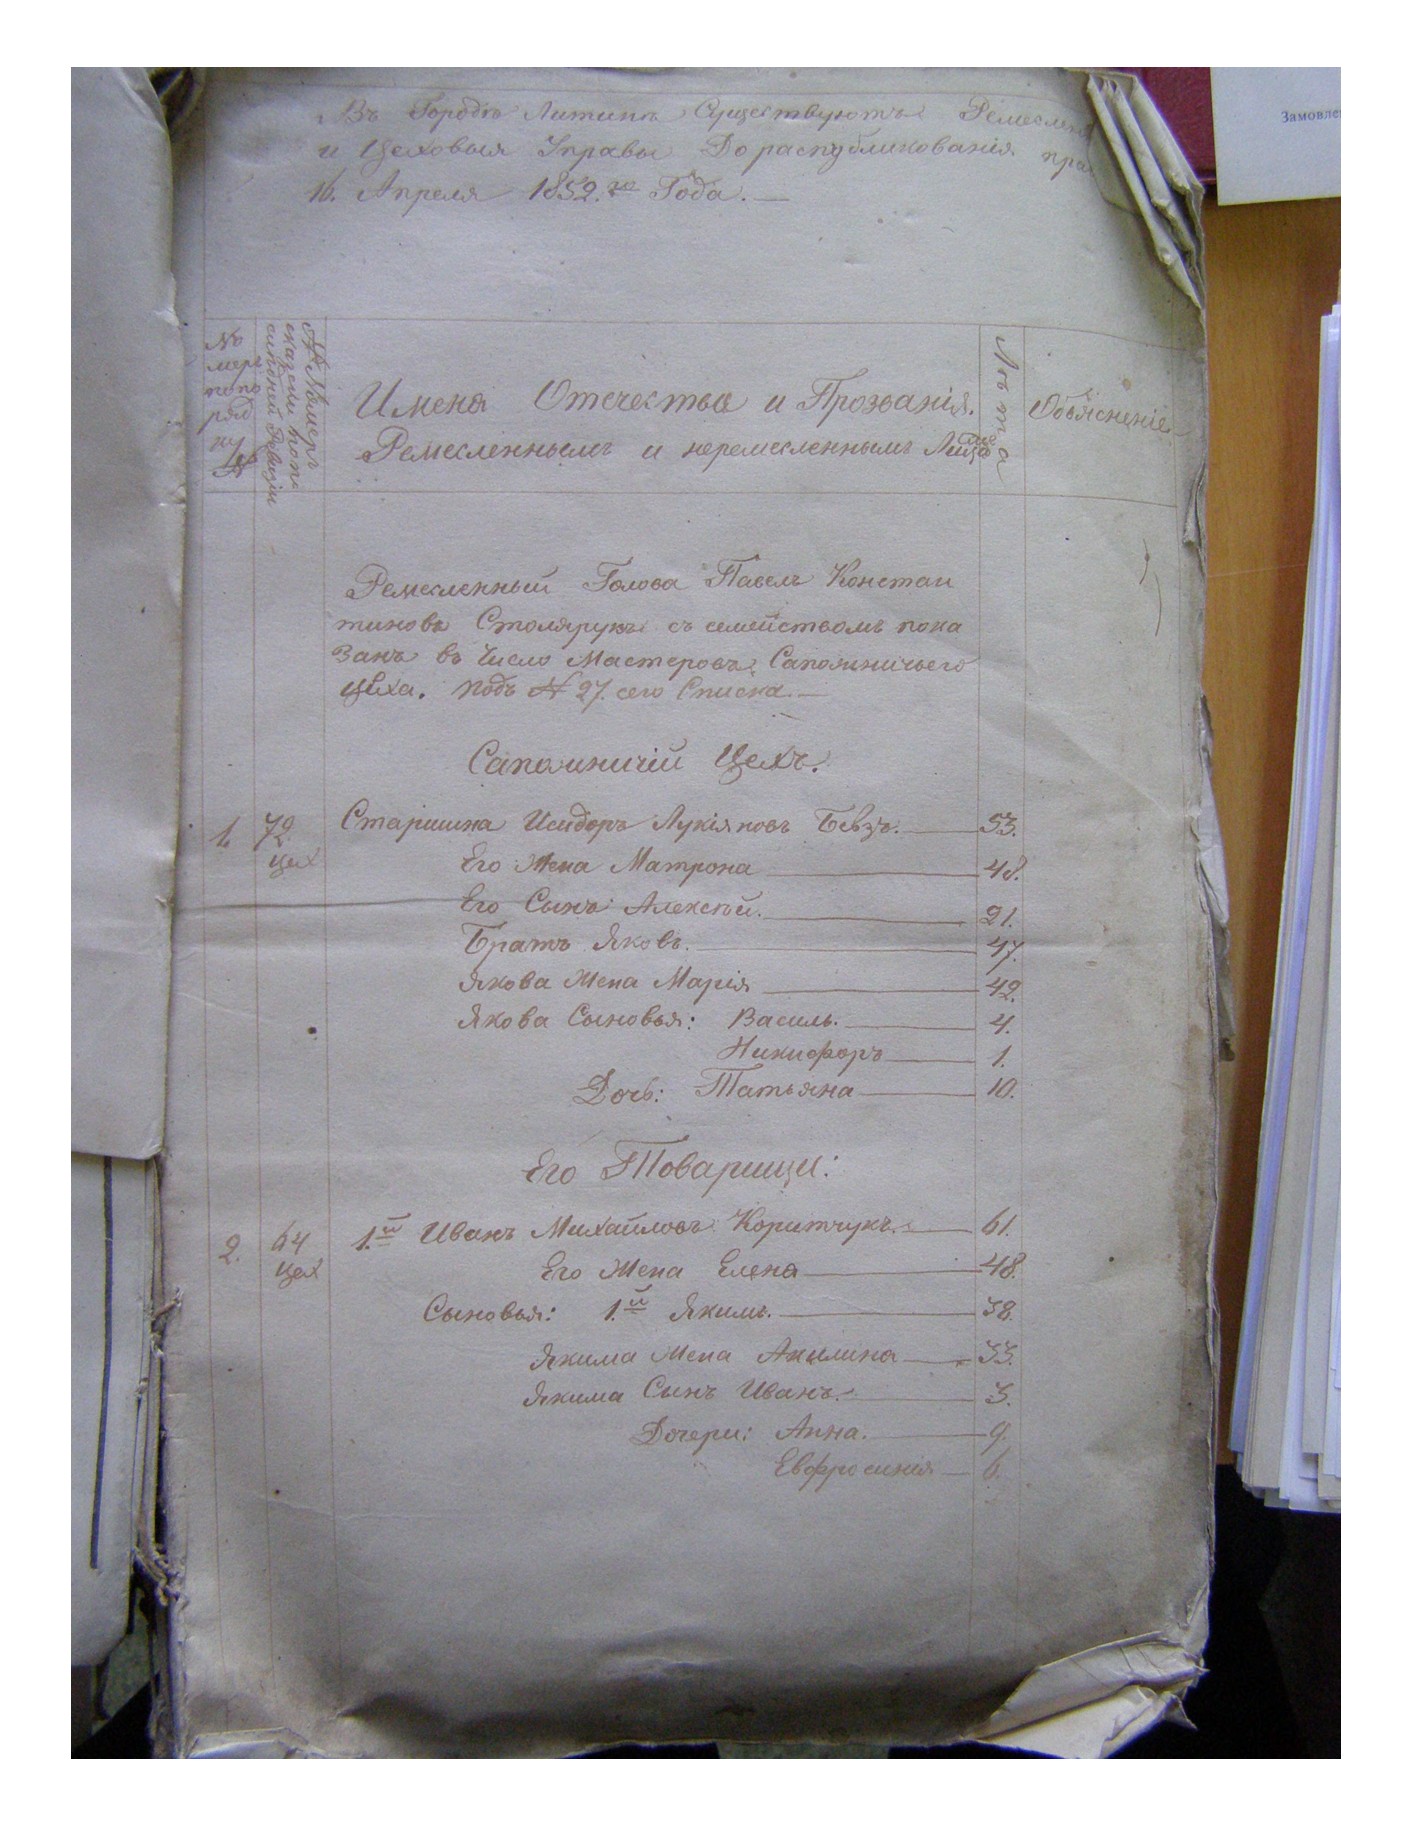 Въ Городѣ Литинѣ Существуютъ Ремеслен
и Цеховыя Управы До распубликованія пра
16. Апреля 1852.го Года.—
Замовле
№
меръ
попо
ряд
ку
№ Номеръ
сказки по по
слѣдней Ревизіи
Имена Отечества и Прозванія.
Ремесленнымъ и неремесленнымъ Лицамъ
Лѣта
Объясненіе
Ремесленный Голова Павелъ Констан
тиновъ Столярукъ съ семействомъ пока
занъ въ Число Мастеровъ Сапожничьего
Цѣха. подъ № 27. сего Списка.—
Сапожничій Цехъ.
1. 72 Старшина Исидоръ Лукіяновъ Бевзъ. — 53.
цех Его Жена Матрона — 48.
Его Сынъ Алексѣй. — 21.
Братъ Яковъ. — 47.
Якова Жена Марія — 42.
Якова Сыновья: Василь. — 4.
Никифоръ — 1.
Дочь: Татьяна — 10.
Его Товарищи:
2. 64 1.й Иванъ Михайловъ Коритчукъ. — 61.
цех Его Жена Елена — 48.
Сыновья: 1.й Якимъ. — 38.
Якима Жена Акилина — 33.
Якима Сынъ Иванъ. — 3.
Дочери: Анна. — 9.
Евфросинія — 6.